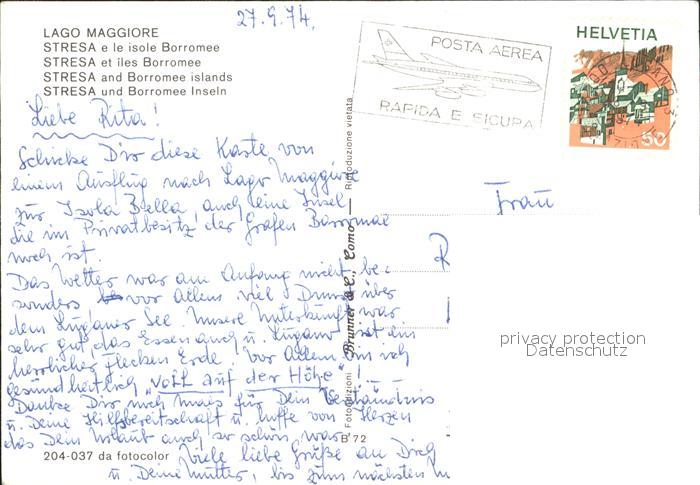 27.9.74.
LAGO MAGGIORE
STRESA e le isole Borromee
STRESA et îles Borromee
STRESA and Borromee islands
STRESA und Borromee Inseln
POSTA AEREA
RAPIDA E SICURA
HELVETIA
50
Liebe Rita!
Schicke Dir diese Karte von
einem Ausflug nach Lago Maggiore
zur Isola Bella, auch eine Insel
die im Privatbesitz der Grafen Borromae
noch ist.
Das Wetter war am Anfang nicht be-
sonders vor allem viel Dunst über
dem Luganer See. Unsere Unterkunft war
sehr gut, das Essen auch u. Lugano ist ein
herrlicher Flecken Erde. Vor allem bin ich
gesundheitlich "voll auf der Höhe"!
Danke Dir noch mals für Dein Verständnis
u. Deine Hilfsbereitschaft u. hoffe von Herzen
das Dein Urlaub auch so schön war.
Viele liebe Grüße an Dich
u. Deine Mutter, bis zum nächsten
Frau
R
Riproduzione vietata
Brunner & C., Como
Fotoedizioni
B 72
204-037 da fotocolor
privacy protection
Datenschutz